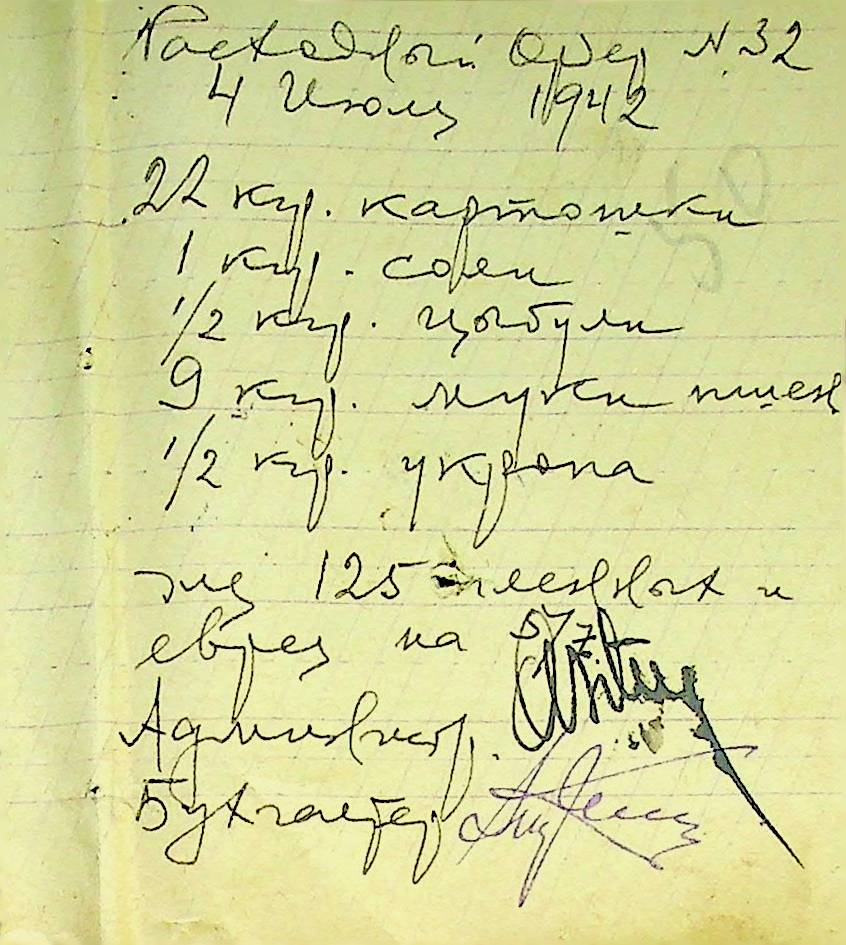 Расходный Ордер N 32
4 Июля 1942
22 кгр. картошки
1 кгр. соли
1/2 кгр. цыбули
9 кгр. муки пшен
1/2 кгр. укропа
для 125 пленных и
еврея на 5/7
Администр.
Бухгалтер
50